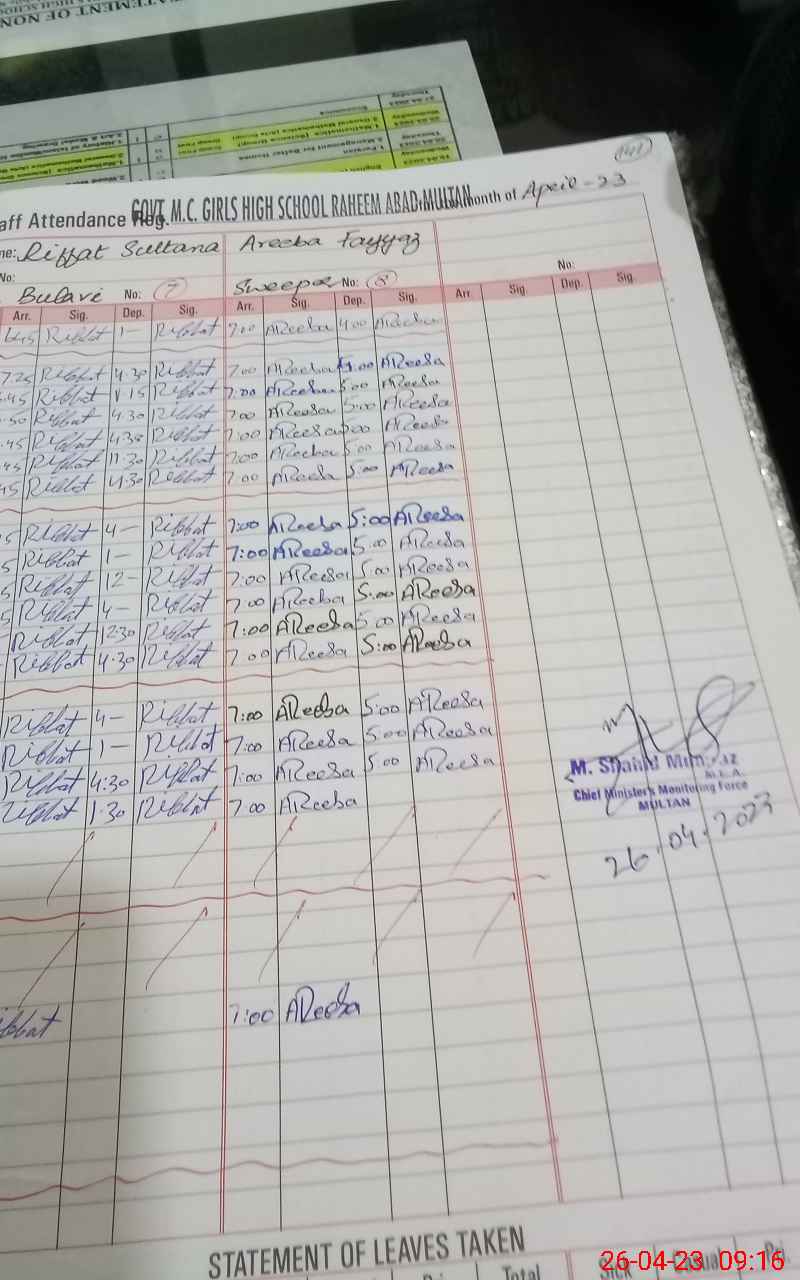 STATEMENT OF NON
141
GOVT. M.C. GIRLS HIGH SCHOOL RAHEEM ABAD MULTAN
aff Attendance Reg. month of April-23
me: Riffat Sultana Areeba Fayyaz
No: No:
Bulavi No: 7 Sweeper No: 8
Arr. Sig. Dep. Sig. Arr. Sig. Dep. Sig. Arr. Sig. Dep. Sig.
Riffat 1- Riffat 7:00 AReeba 4:00 AReeba
7.25 Riffat 4.30 Riffat 7:00 AReeba 5:00 AReeba
.45 Riffat Riffat 7:00 AReeba 5:00 AReeba
.50 Riffat 4.30 Riffat 7:00 AReeba 5:00 AReeba
.45 Riffat 4.30 Riffat 7:00 AReeba 5:00 AReeba
.45 Riffat 11.30 Riffat 7:00 AReeba 5:00 AReeba
45 Riffat 4.30 Riffat 7:00 AReeba 5:00 AReeba
5 Riffat 4- Riffat 7:00 AReeba 5:00 AReeba
5 Riffat 1- Riffat 7:00 AReeba 5:00 AReeba
5 Riffat 12- Riffat 7:00 AReeba 5:00 AReeba
5 Riffat 4- Riffat 7:00 AReeba 5:00 AReeba
Riffat 12:30 Riffat 7:00 AReeba 5:00 AReeba
Riffat 4.30 Riffat 7:00 AReeba 5:00 AReeba
Riffat 4- Riffat 7:00 AReeba 5:00 AReeba
Riffat 1- Riffat 7:00 AReeba 5:00 AReeba
Riffat 4:30 Riffat 7:00 AReeba 5:00 AReeba
Riffat 1.30 Riffat 7:00 AReeba
M. Shahid Mumtaz
M.E.A.
Chief Minister's Monitoring Force
MULTAN
26.04.2023
iffat 7:00 AReeba
STATEMENT OF LEAVES TAKEN
Total Sick Casual
26-04-23 09:16